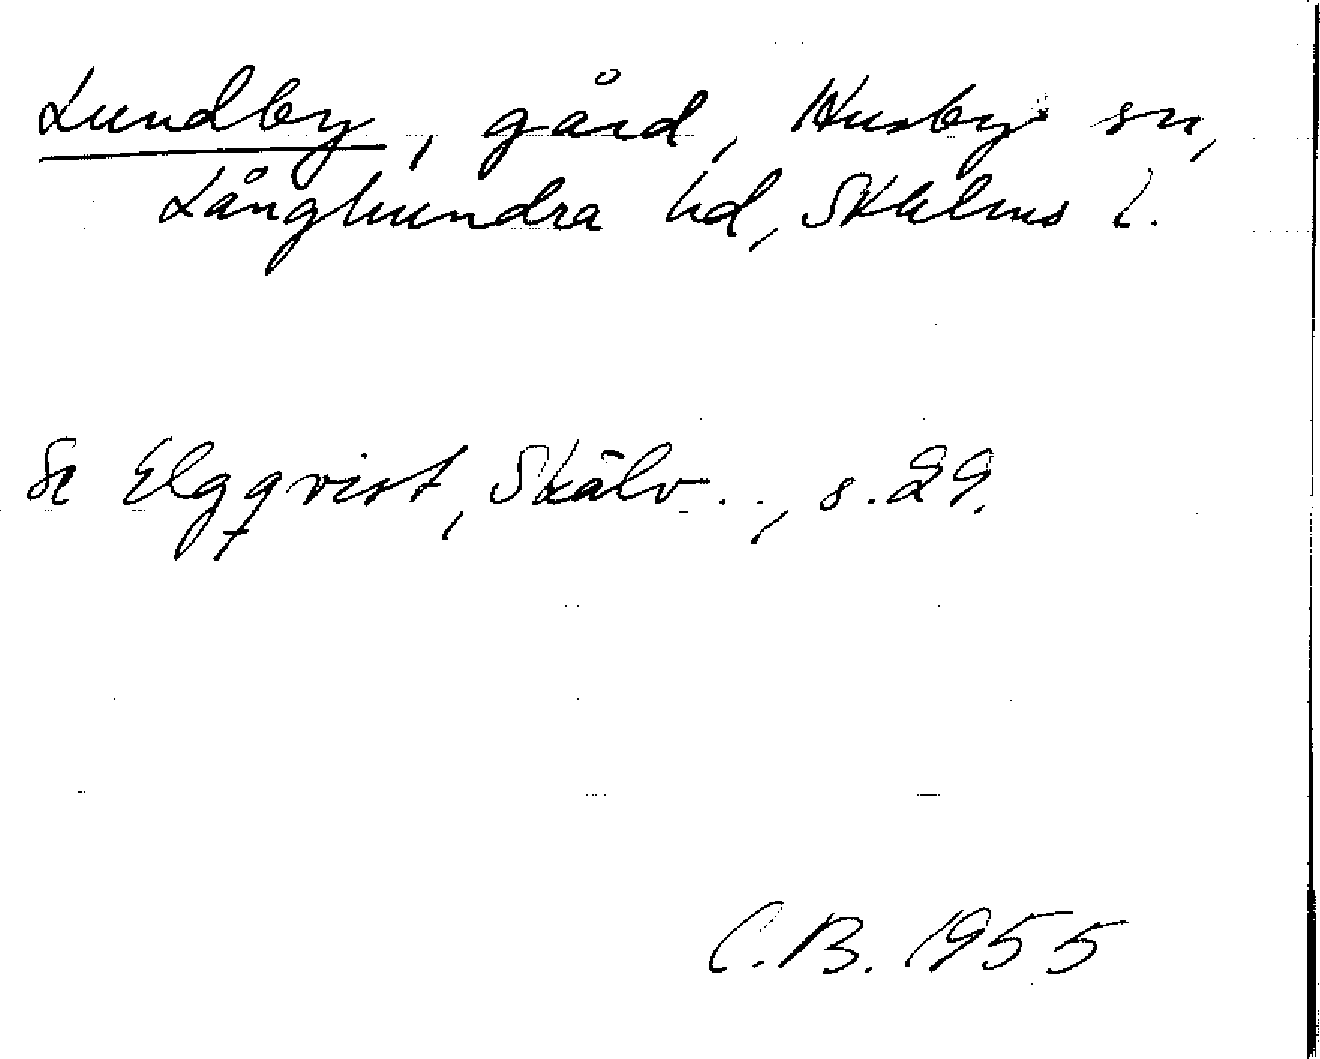 Lundby, gård, Husby sn,
Långhundra hd, Sthlms l.
Se Elgqvist, Skälv..., s. 29.
C.B. 1955